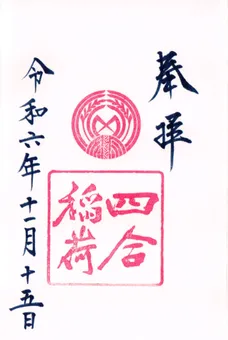 奉拝
四合
稲荷
令和六年十一月十五日